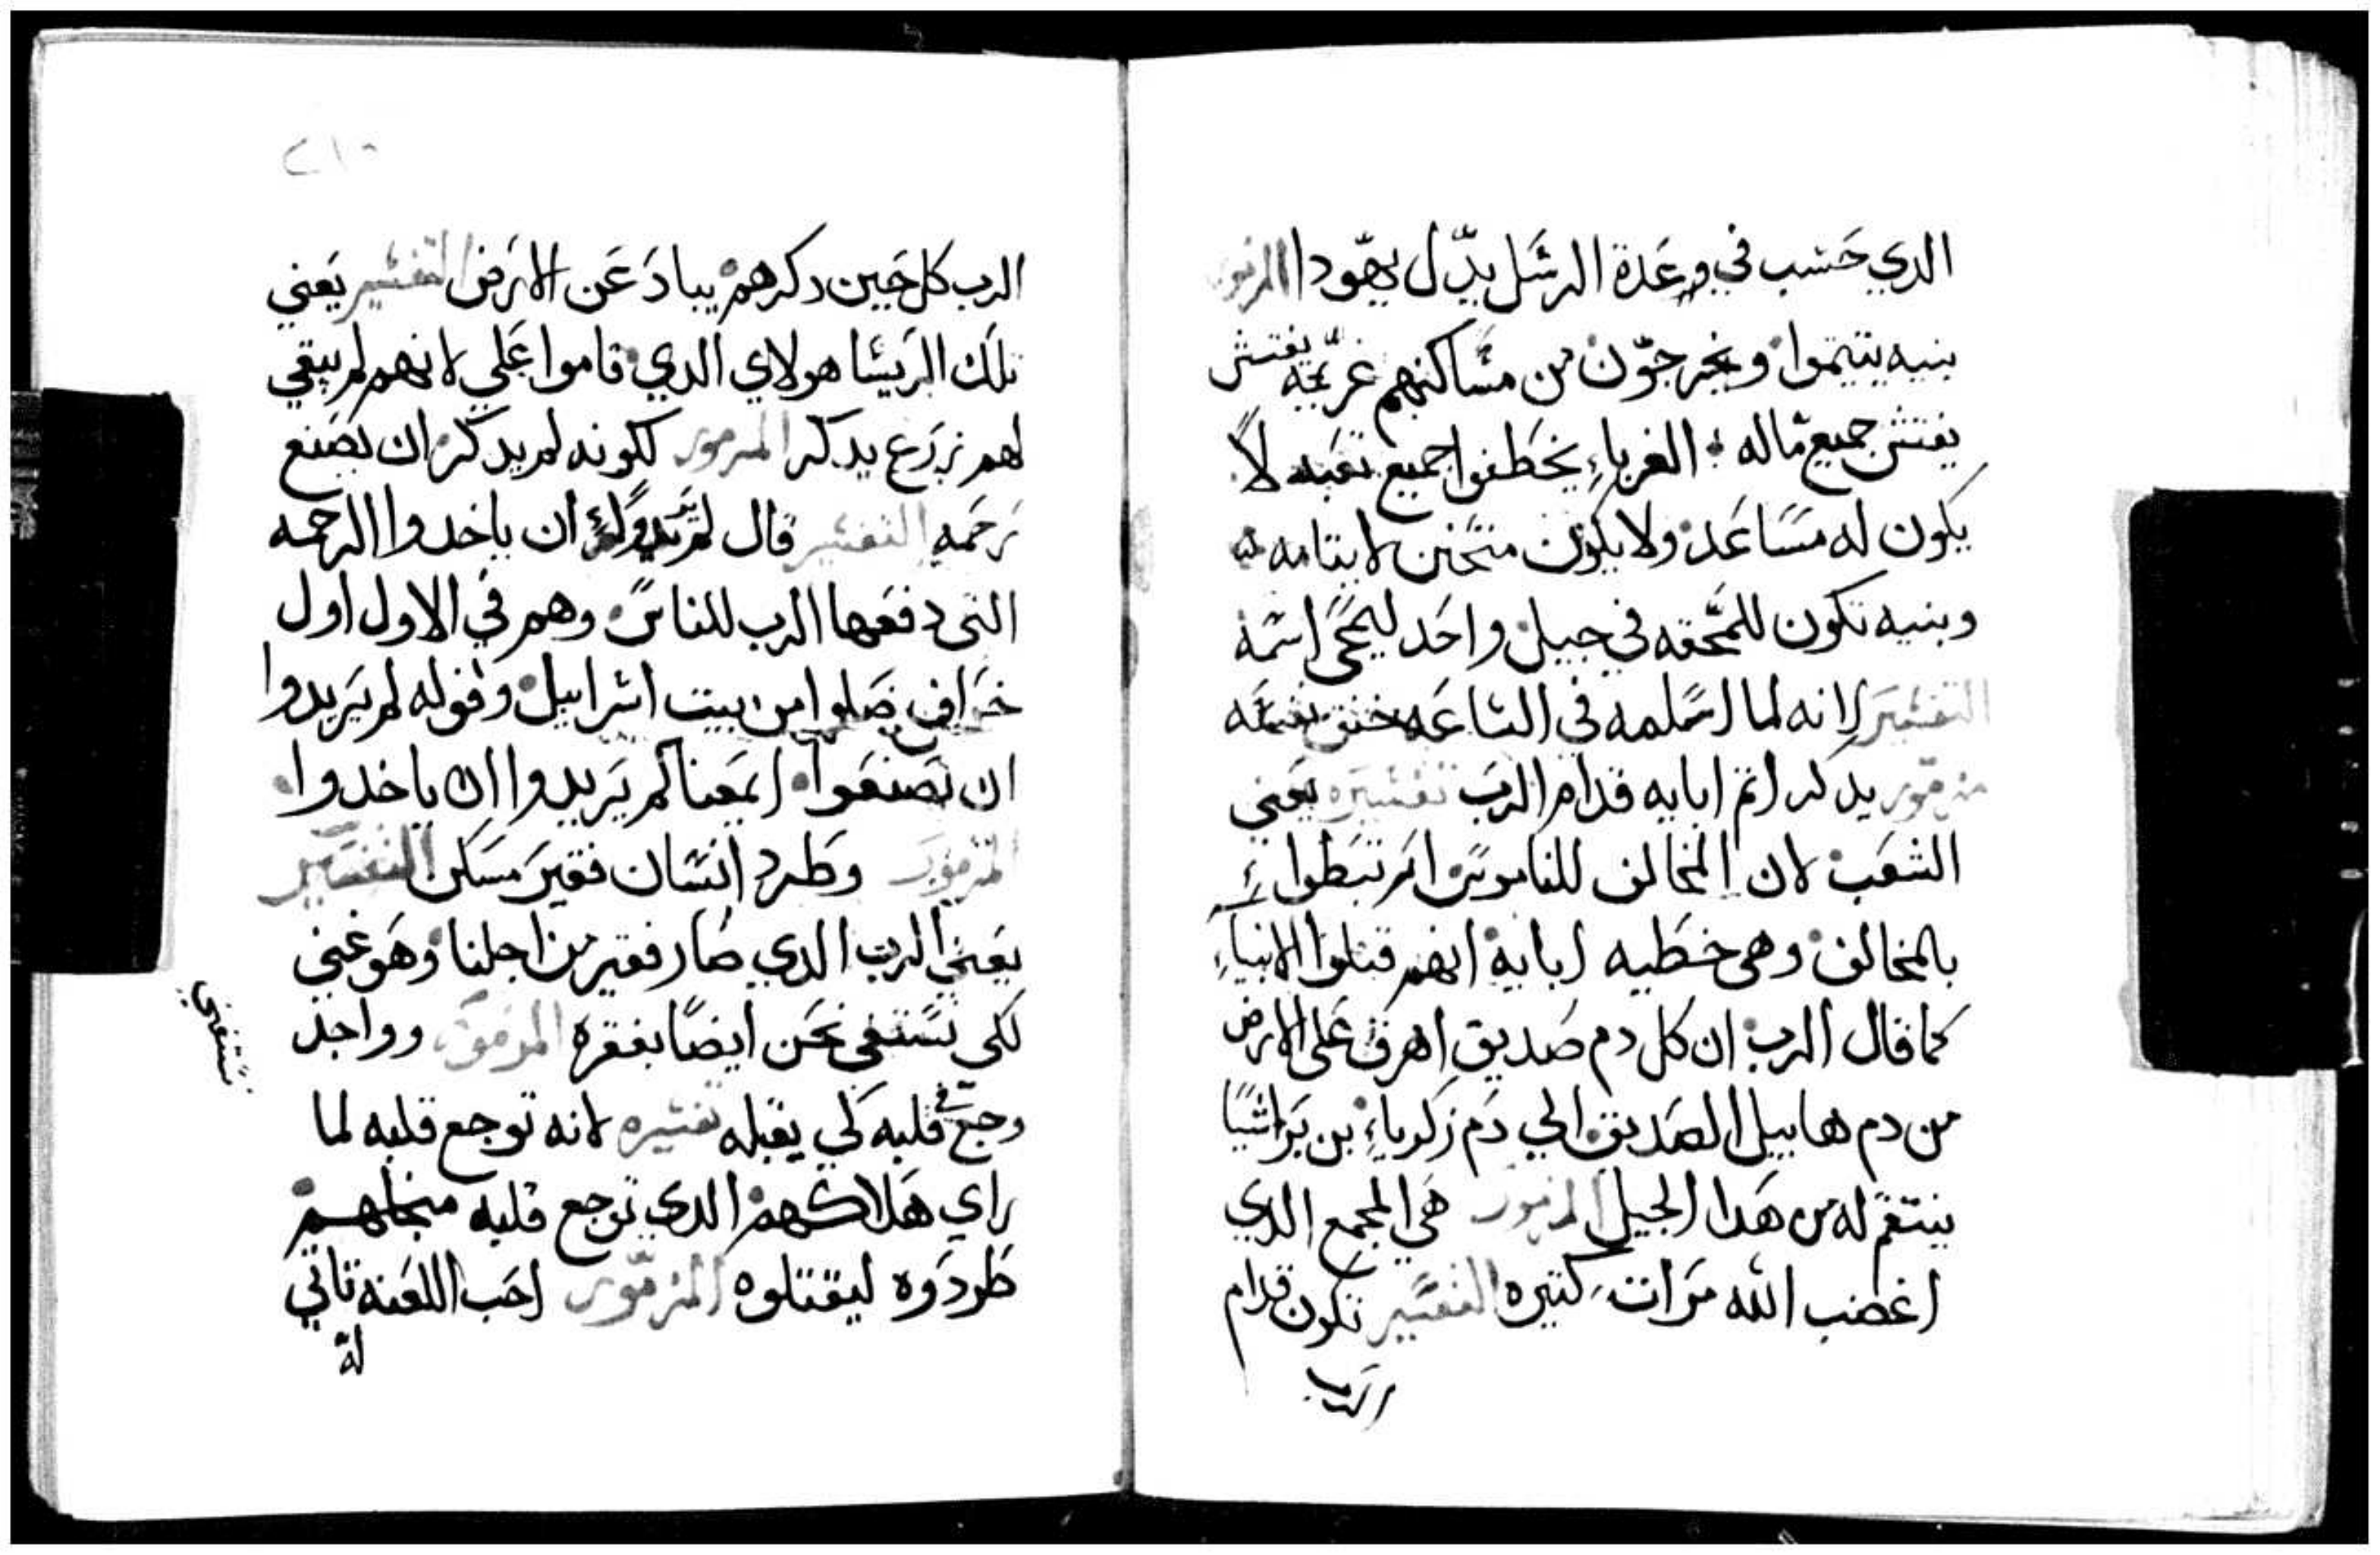 الدي حسب في وعدة الرسل بدّل يهودا المزمور
بنيه يتيتموا ويخرجون من مساكنهم غريمه يفتش
يفتش جميع ماله الغرباء يخطفوا جميع تعبه لا
يكون له مساعد ولا يكون متحنن لايتامه
وبنيه تكون للمحقه في جيل واحد ليمحى اسمه
التفسير لانه لما اسلمه في الساعه خنق نفسه
مزمور يدكر اتم ابايه قدام الرب تفسيره يعني
الشعب لان المخالف للناموس ارتبطوا
بالمخالف وهي خطيه ابايه انهم قتلوا الانبياء
كما قال الرب ان كل دم صديق اهرق على الارض
من دم هابيل الصديق الي دم زكرياء بن براشيا
ينتقم له من هدا الجيل المزمور هي المجمع الدي
اغضب الله مرات كتيره التفسير تكون قدام
الرب
الرب كل حين دكرهم يباد عن الارض التفسير يعني
تلك الريسا هولاي الدي قاموا علي لانهم لم يبقي
لهم زرع يدكر المزمور لكونه لم يدكر ان يصنع
رحمه التفسير قال لم يريدوا ان ياخدوا الرحمه
التى دفعها الرب للناس وهم في الاول اول
خراف ضلوا من بيت اسراييل وقوله لم يريدوا
ان تصنعوا ايمعنا لم يريدوا ان ياخدوا
المزمور وطرد انسان فقير مسكن التفسير
يعني الرب الدي صار فقير من اجلنا وهو غني
لكى نستغنى نحن ايضا بفقره المزمور وواجد
نستغني
وجع في قلبه كي يقبله تفسيره لانه توجع قلبه لما
راي هلاكهم الدي توجع قلبه منجلهم
طردوه ليقتلوه المزمور احب اللعنه تاتي
له